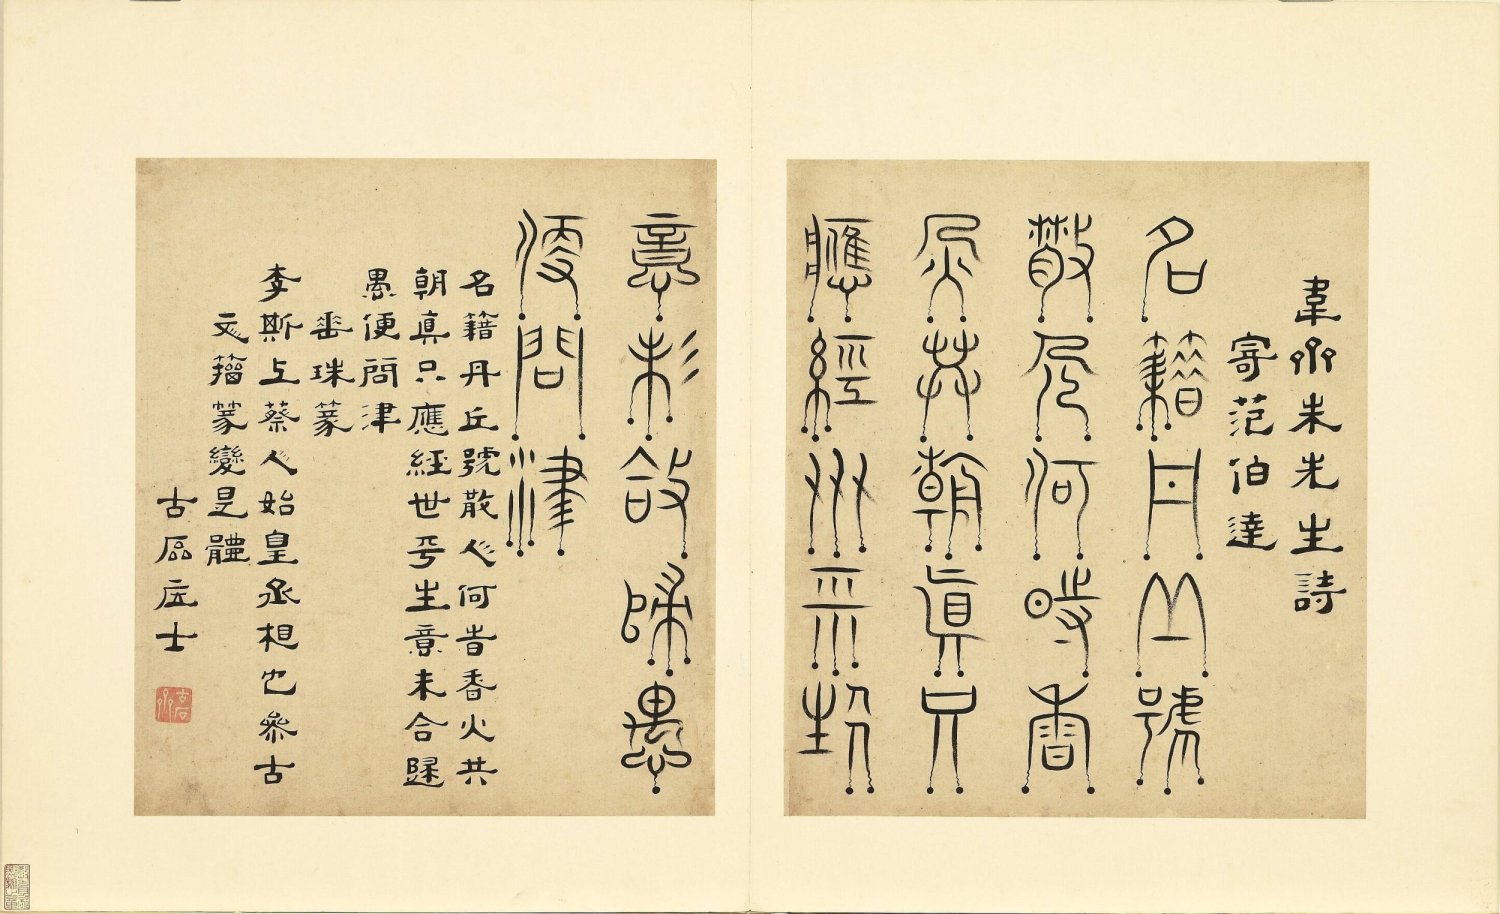 韋齋朱先生詩
寄范伯達
名籍丹丘號
散人何時香
火共朝真只
應經世平生
意未合歸愚
便問津
名籍丹丘號散人何旹香火共
朝真只應經世平生意未合歸
愚便問津
垂珠篆
李斯上蔡人始皇丞相也參古
文籀篆變是體
古士